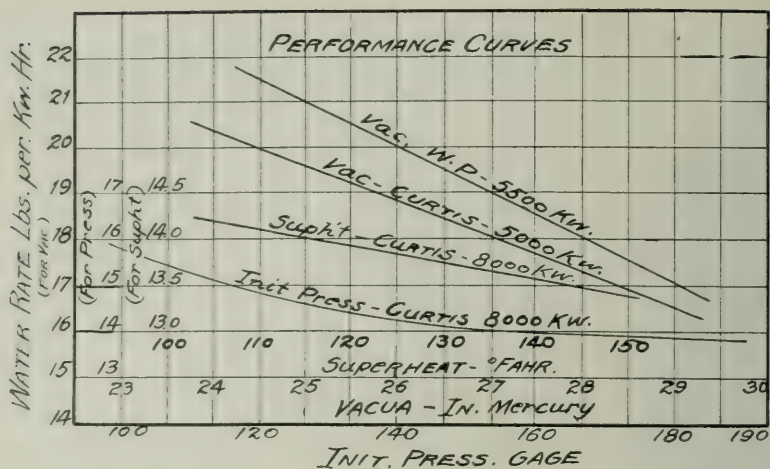 PERFORMANCE CURVES
WATER RATE LBS. per. KW. Hr.
(FOR VAC)
(For Press)
(For Supht)
22
21
20
19
18
17
16
15
14
17
16
15
14
13
14.5
14.0
13.5
13.0
Vac. W.P-5500 KW.
Vac-CURTIS-5000 KW.
Suph't-CURTIS-8000 KW.
Init Press-CURTIS 8000 KW.
100 110 120 130 140 150
SUPERHEAT-°FAHR.
23 24 25 26 27 28 29 30
VACUA-IN. MERCURY
100 120 140 160 180 190
INIT. PRESS. GAGE